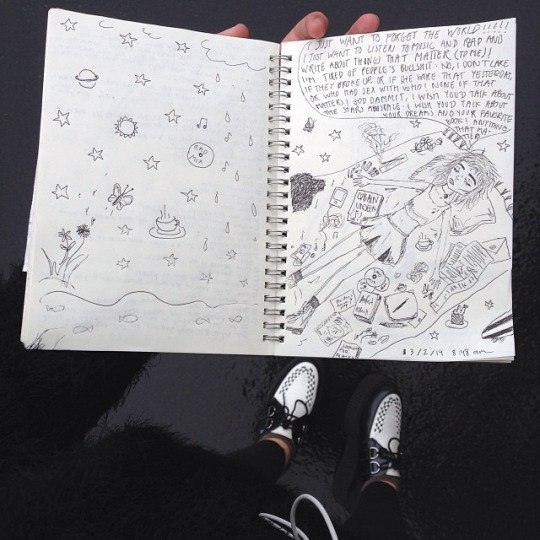 RAD
MIX
I JUST WANT TO FORGET THE WORLD!!!!!
I JUST WANT TO LISTEN TO MUSIC AND READ AND
WRITE ABOUT THINGS THAT MATTER (TO ME)!
I'M TIRED OF PEOPLE'S BULLSHIT. NO, I DON'T CARE
IF THEY BROKE UP OR IF SHE WORE THAT YESTERDAY,
OR WHO HAD SEX WITH WHO! NONE OF THAT
MATTERS! GOD DAMMIT, I WISH YOU'D TALK ABOUT
THE STARS I WISH YOU'D TALK ABOUT
YOUR DREAMS AND YOUR FAVORITE
BOOK! ANYTHING
THAT MA-
TTER
URBAN
3/2/14 8:48 am